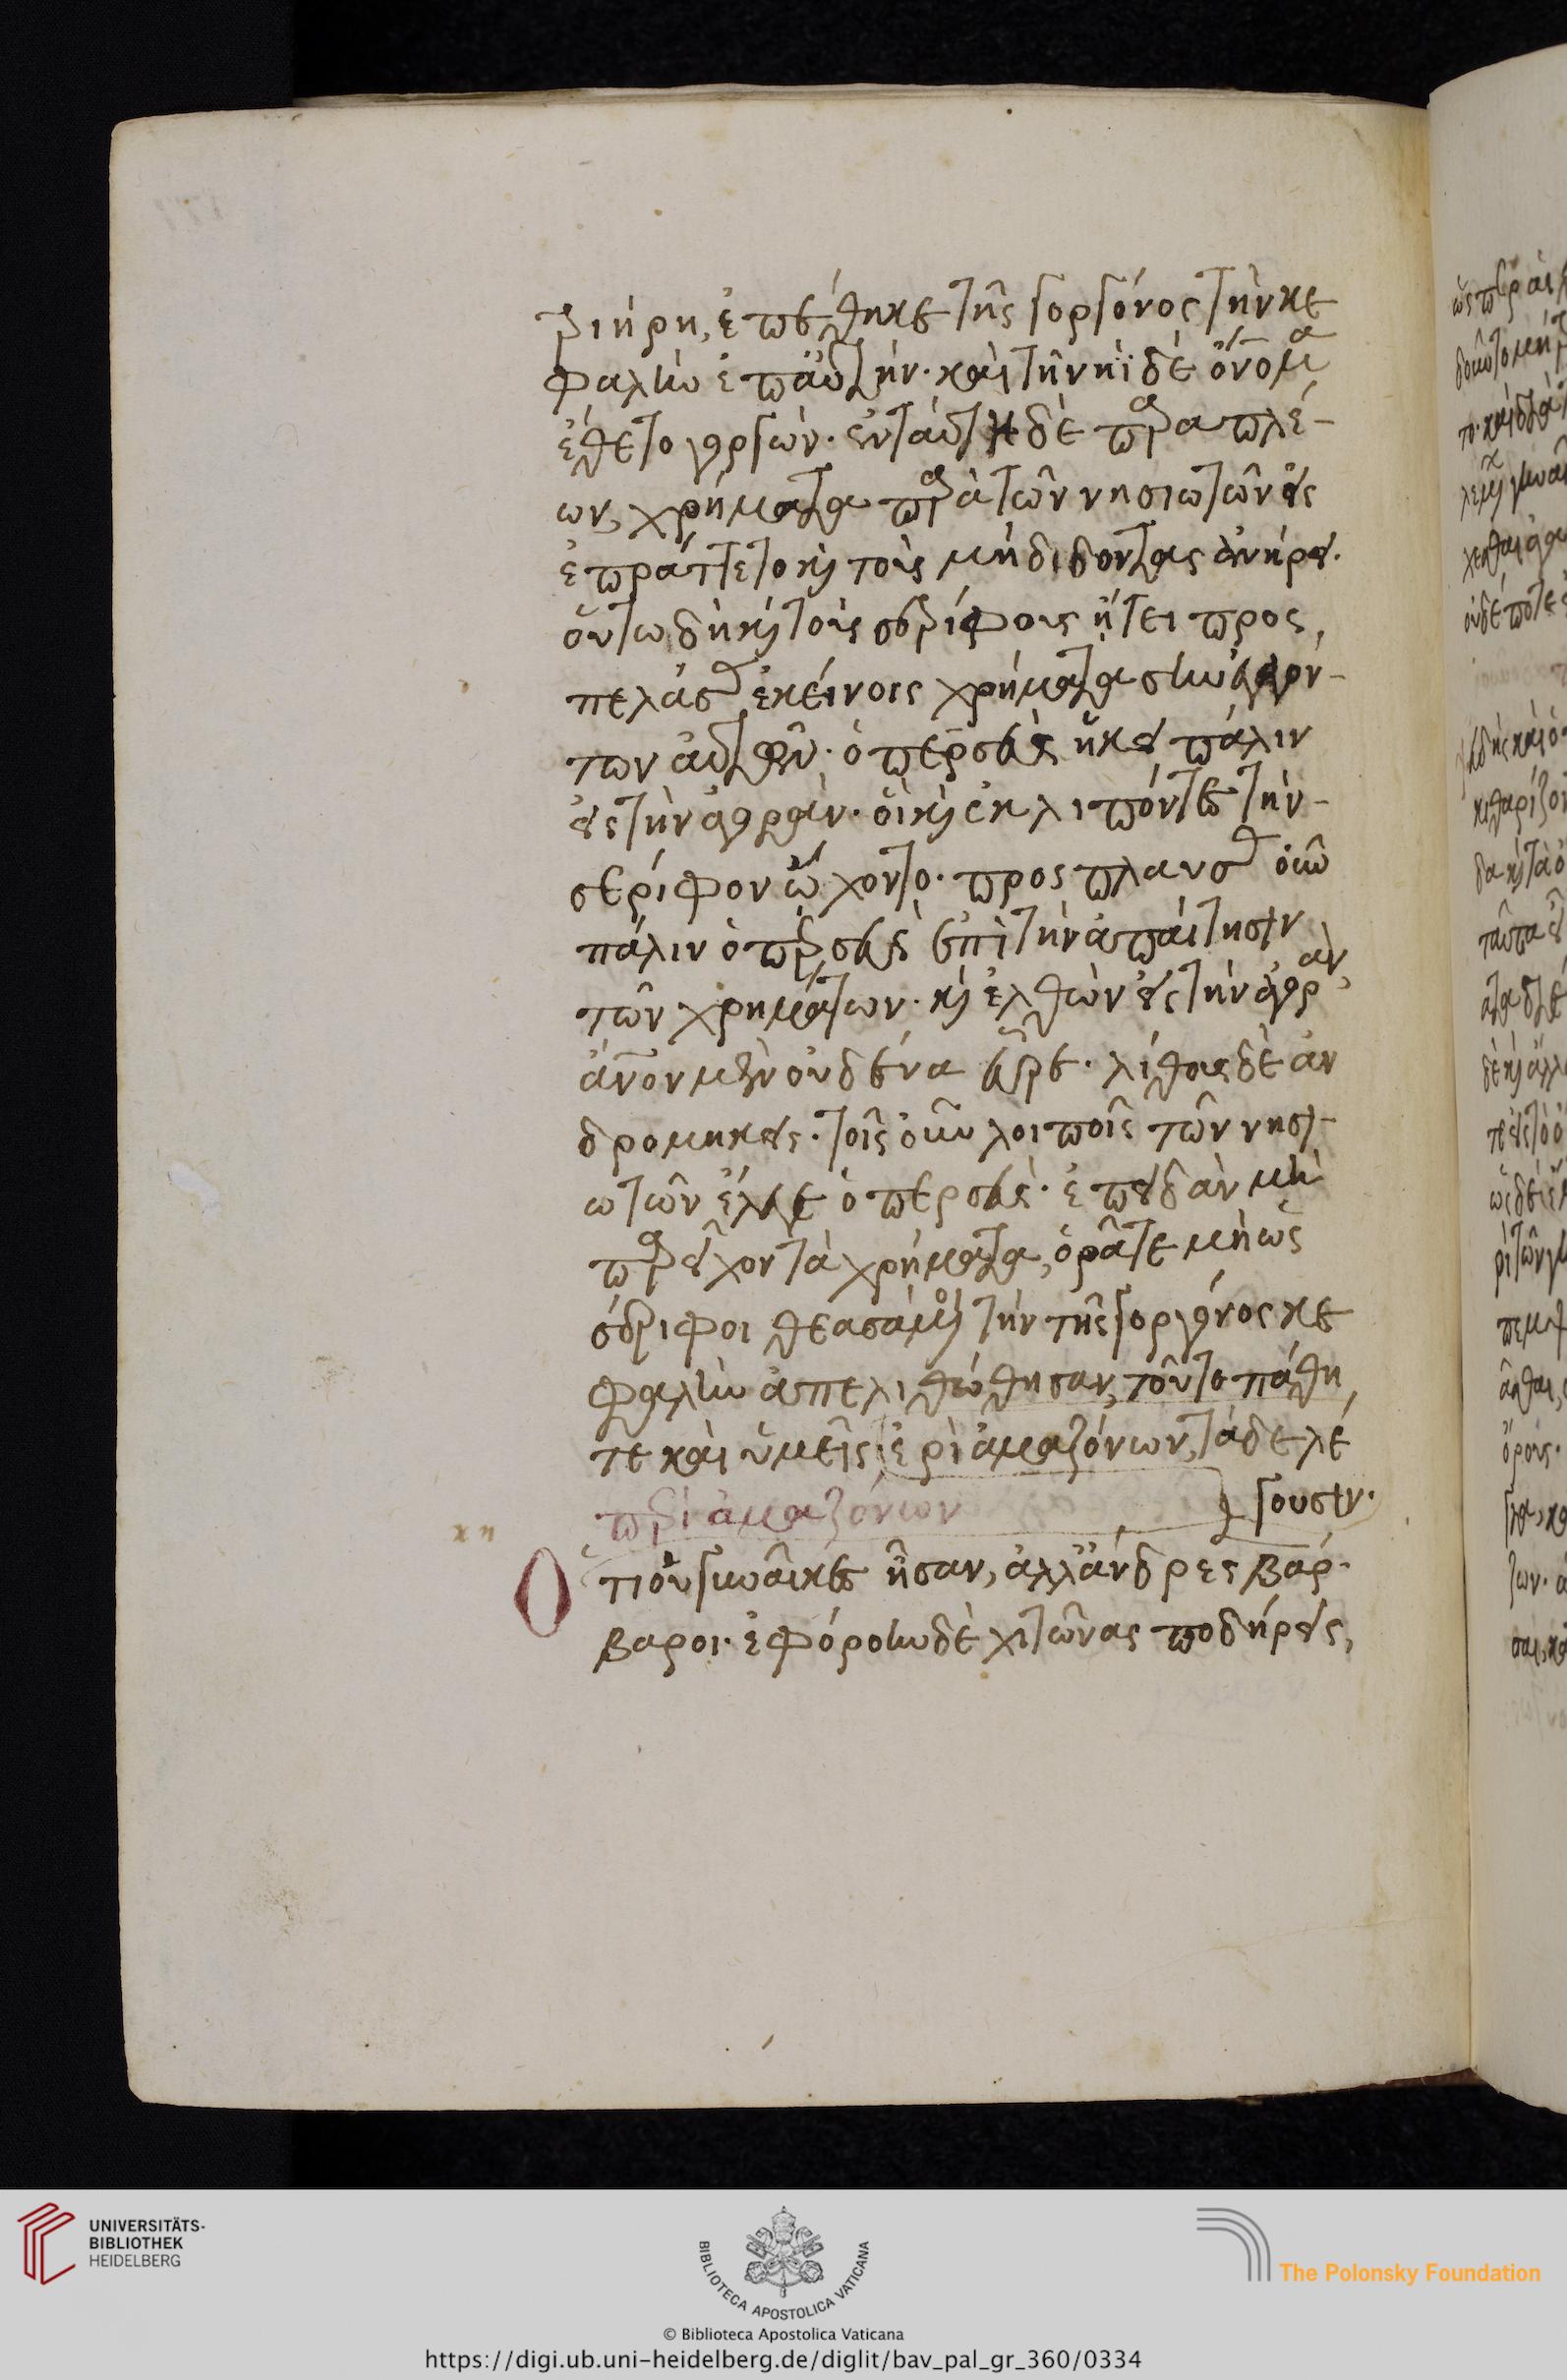 τριήρη, ἐπέθηκε τῆς γοργόνος τὴν κε
φαλὴν ἐπ' αὐτήν. καὶ τῆ νηῒ δὲ ὄνομα
ἔθετο γοργών. ἐν ταύτη δὲ παραπλέ-
ων, χρήματα παρὰ τῶν νησιωτῶν εἰς
ἐπράττετο κ τοὺς μὴ διδόντας ἀνήρει.
οὕτω δὴ κ τοὺς σερίφους ἤτει προς
πελάσας ἐκείνοις χρήματα συναγόν-
των αὐτῶν. ὁ περσεὺς ἧκε πάλιν
εἰς τὴν ἀγοράν. οἱ κ ἐκλιπόντες τὴν-
σερίφον ὤχοντο. προσπλεύσας οὖν
πάλιν ὁ περσεὺς ἐπὶ τὴν ἀπαίτησιν
τῶν χρημάτων. κ ἐλθὼν εἰς τὴν ἀγοράν,
ἄνον μὲν οὐδένα εὗρε. λίθους δὲ ἀν
δρομήκεις. τοῖς οὖν λοιποῖς τῶν νησι-
ωτῶν ἔλεγε ὁ περσεὺς. ἐπειδὰν μὴ
παρεῖχον τὰ χρήματα, ὁρᾶτε μὴ ὡς
σέριφοι θεασάμενοι τὴν τῆς γοργόνος κε
φαλὴν ἀπελιθώθησαν, τοῦτο πάθη
τε καὶ ὑμεῖς ἐρὶ ἀμαζόνων, τάδε λέ
περὶ ἀμαζόνων γουσιν.
κη
Ὅτι οὐ γυναῖκες ἦσαν, ἀλλ' ἄνδρες βάρ-
βαροι. ἐφόρουν δὲ χιτῶνας ποδήρεις,
UNIVERSITÄTS-
BIBLIOTHEK
HEIDELBERG
BIBLIOTECA APOSTOLICA VATICANA
The Polonsky Foundation
© Biblioteca Apostolica Vaticana
https://digi.ub.uni-heidelberg.de/diglit/bav_pal_gr_360/0334